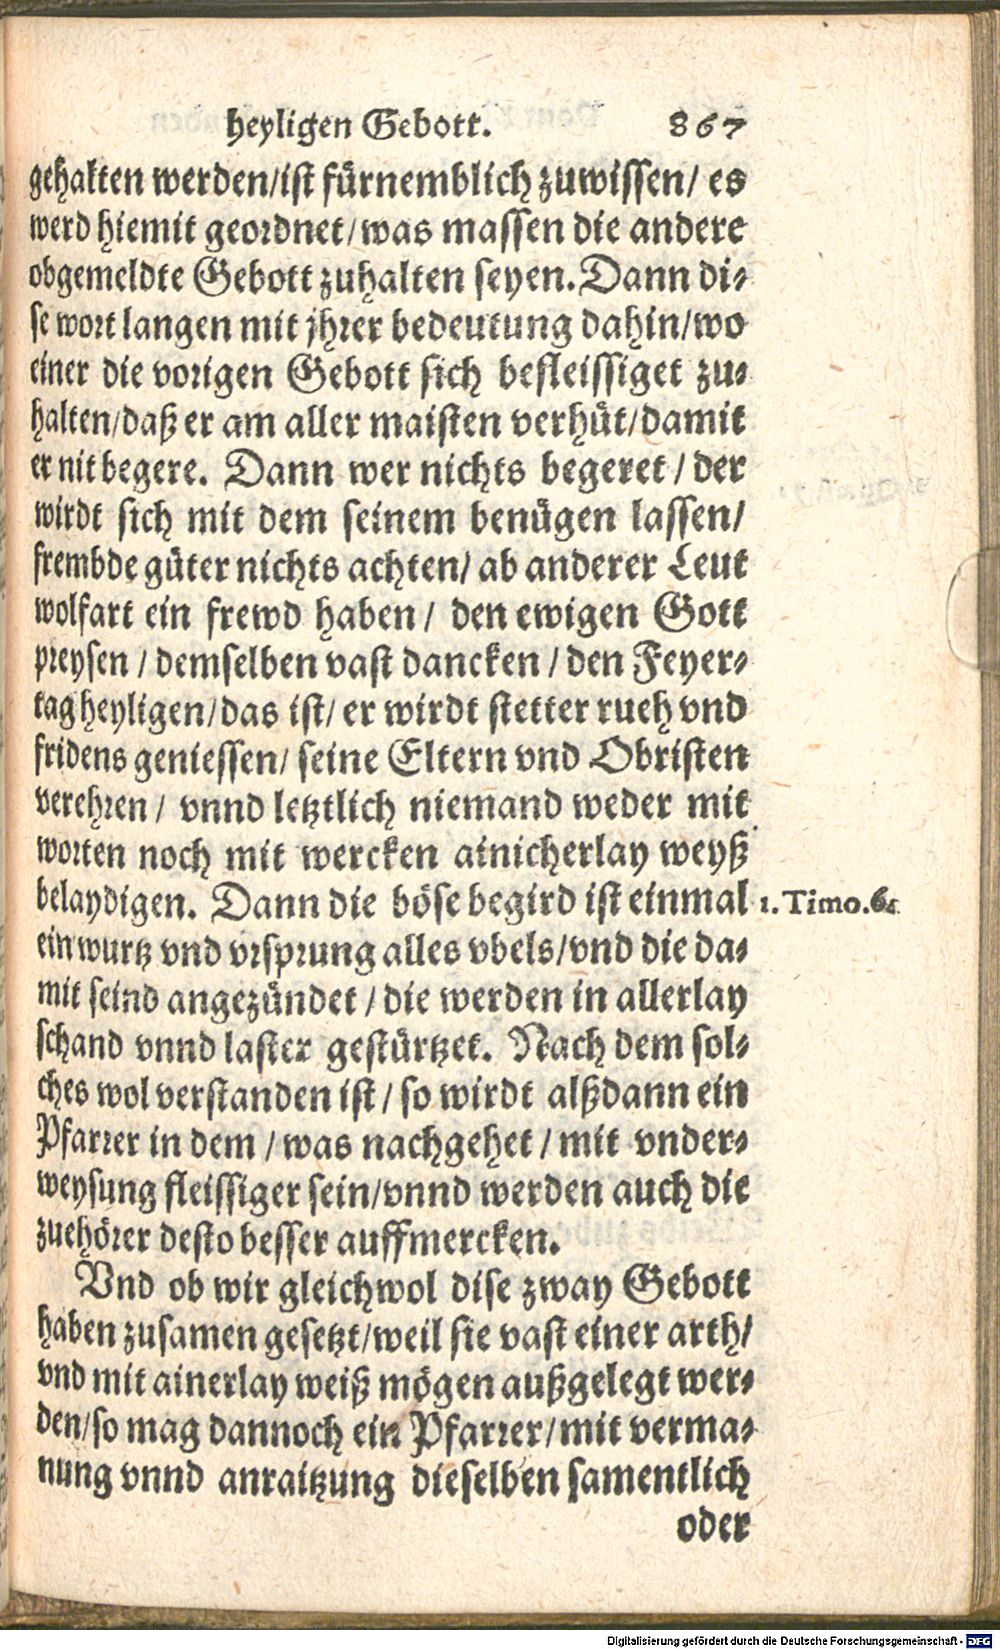 heyligen Gebott. 867
gehalten werden/ist fürnemblich zuwissen/ es
werd hiemit geordnet/was massen die andere
obgemeldte Gebott zuhalten seyen. Dann di-
se wort langen mit jhrer bedeutung dahin/wo
einer die vorigen Gebott sich befleissiget zu-
halten/daß er am aller maisten verhüt/damit
er nit begere. Dann wer nichts begeret / der
wirdt sich mit dem seinem benügen lassen/
frembde güter nichts achten/ ab anderer Leut
wolfart ein frewd haben / den ewigen Gott
preysen / demselben vast dancken / den Feyer-
tag heyligen/das ist/ er wirdt stetter rueh vnd
fridens geniessen/ seine Eltern vnd Obristen
verehren / vnnd letztlich niemand weder mit
worten noch mit wercken ainicherlay weyß
belaydigen. Dann die böse begird ist einmal 1. Timo. 6.
ein wurtz vnd vrsprung alles vbels/vnd die da-
mit seind angezündet / die werden in allerlay
schand vnnd laster gestürtzet. Nach dem sol-
ches wol verstanden ist / so wirdt alßdann ein
Pfarrer in dem / was nachgehet / mit vnder-
weysung fleissiger sein/vnnd werden auch die
zuehörer desto besser auffmercken.
Vnd ob wir gleichwol dise zway Gebott
haben zusamen gesetzt/weil sie vast einer arth/
vnd mit ainerlay weiß mögen außgelegt wer-
den/so mag dannoch ein Pfarrer/mit verma-
nung vnnd anraitzung dieselben samentlich
oder
Digitalisierung gefördert durch die Deutsche Forschungsgemeinschaft - DFG